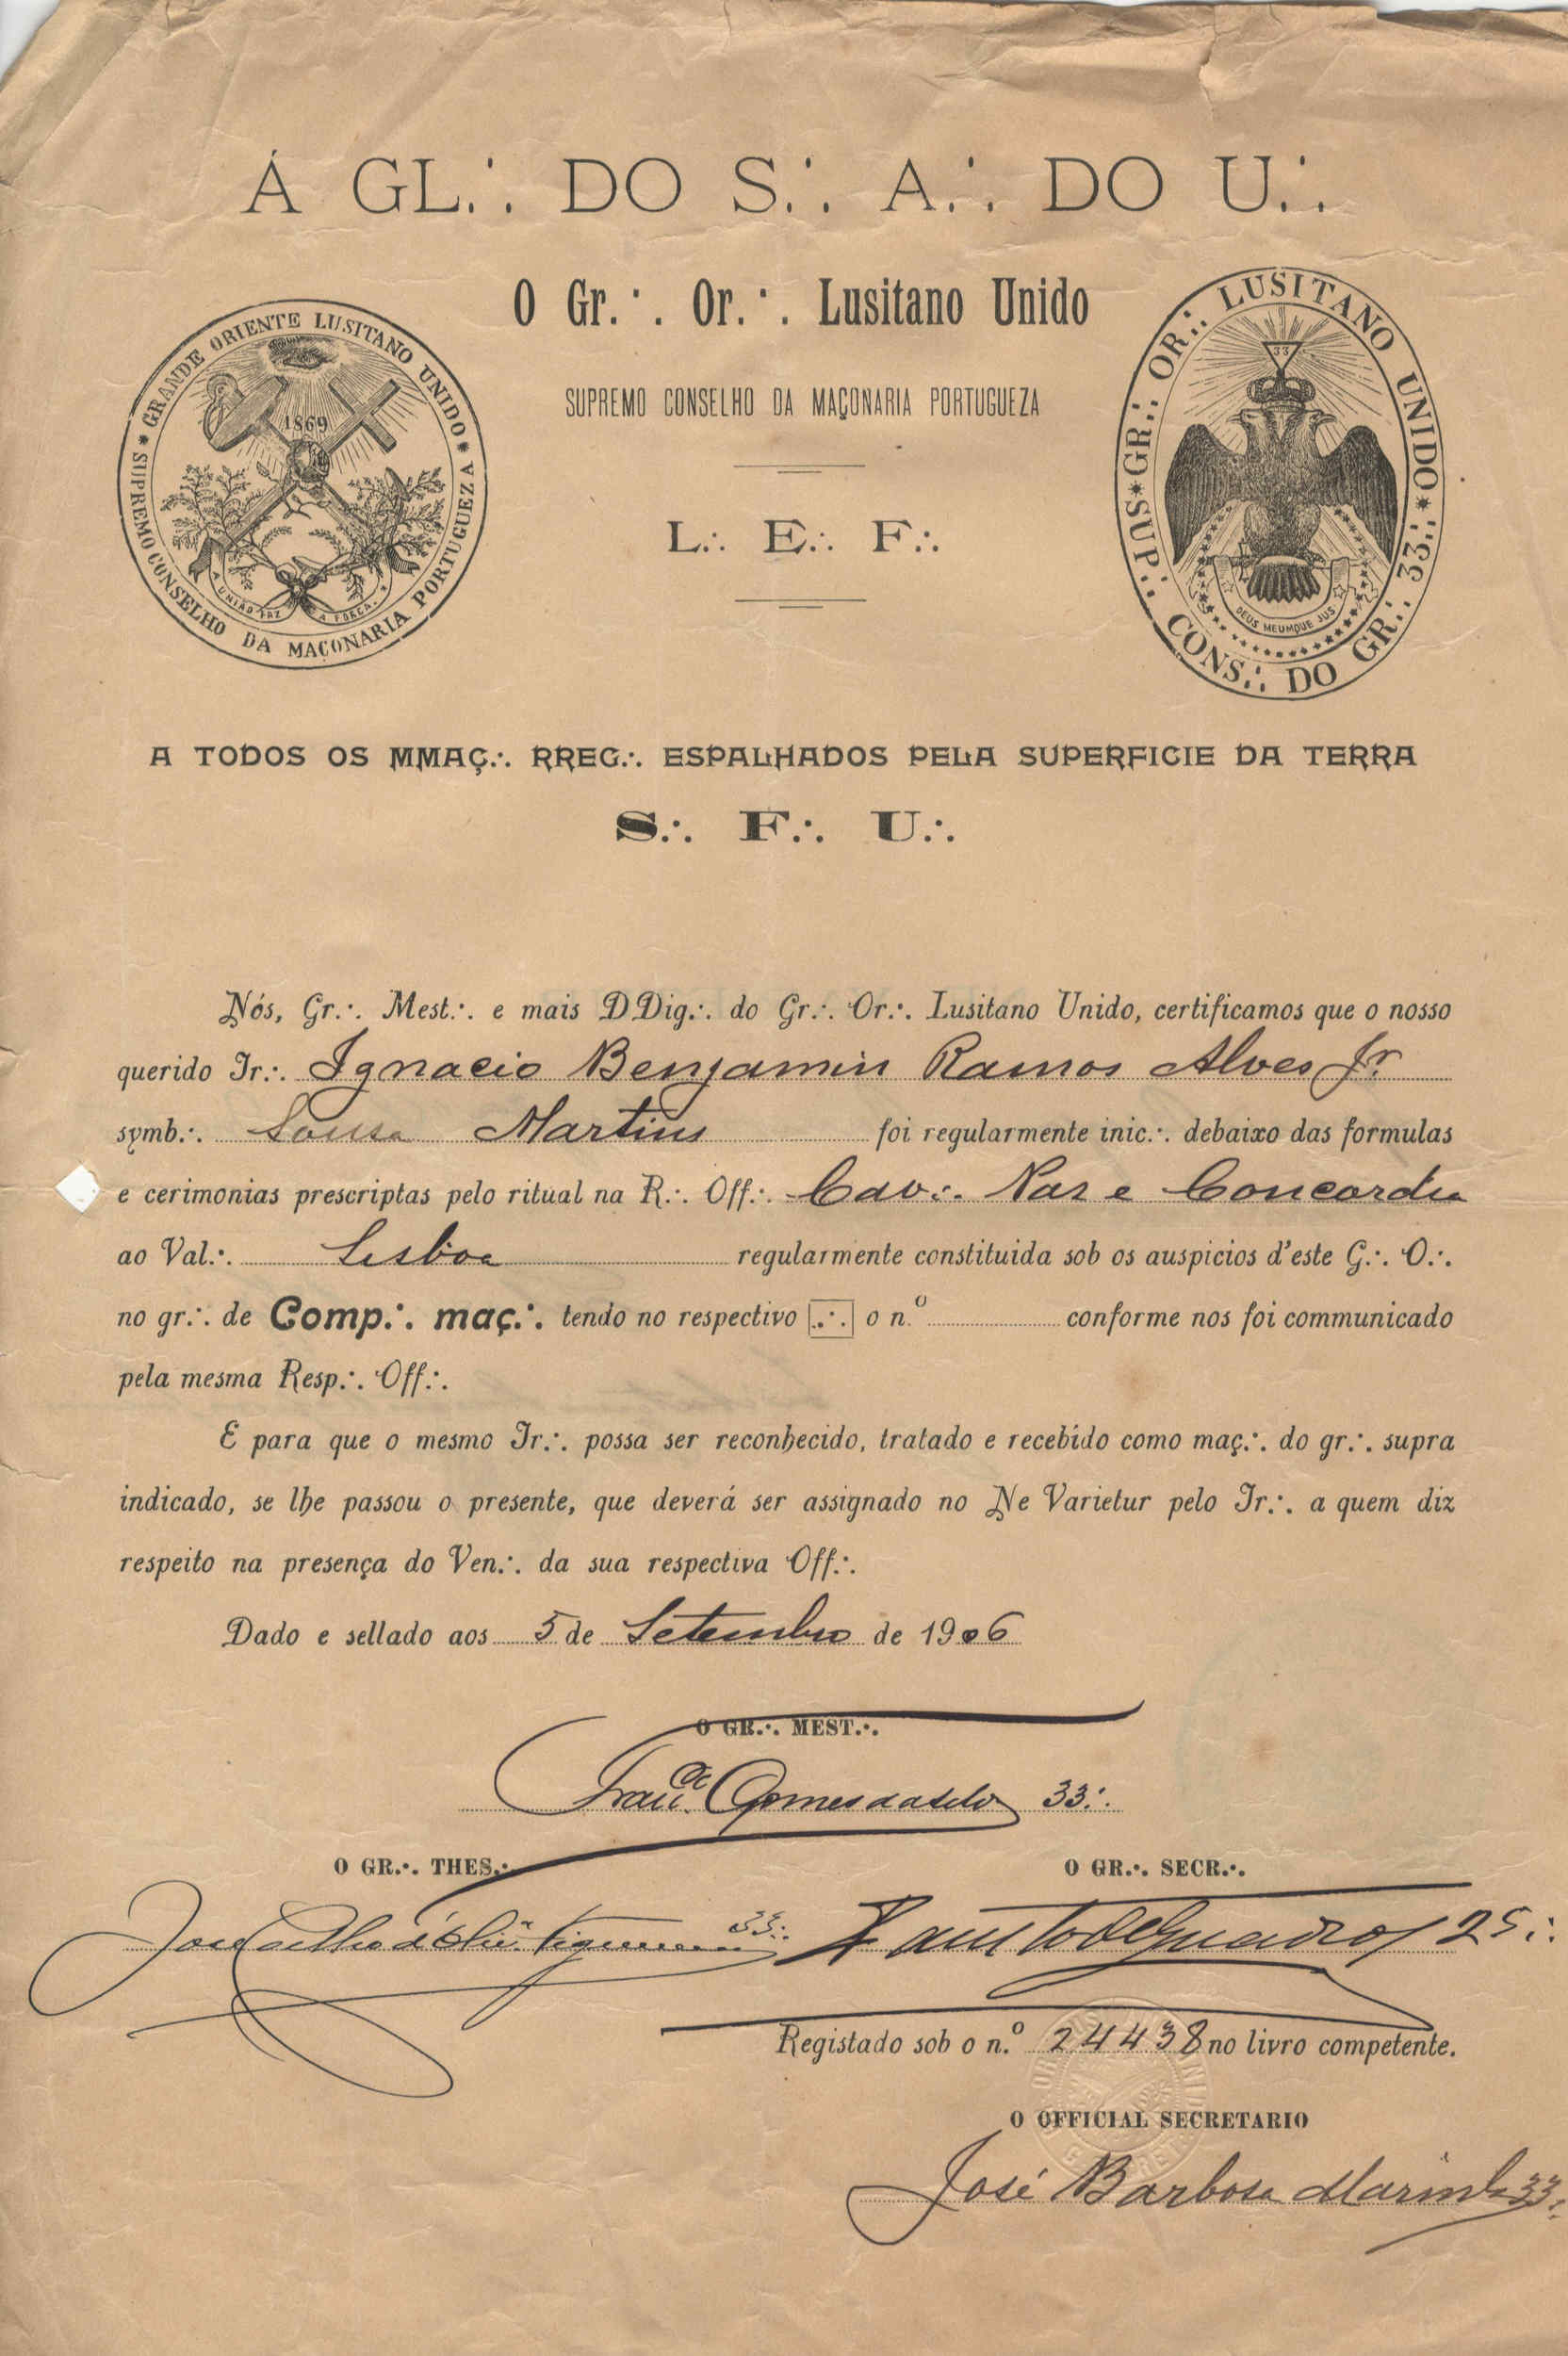 Á GL.·. DO S.·. A.·. DO U.·.
O Gr.·. Or.·. Lusitano Unido
SUPREMO CONSELHO DA MAÇONARIA PORTUGUEZA
L.·. E.·. F.·.
* GRANDE ORIENTE LUSITANO UNIDO * SUPREMO CONSELHO DA MAÇONARIA PORTUGUEZA
1869
A UNIÃO FAZ A FORÇA
* GR.·. OR.·. LUSITANO UNIDO * SUP.·. CONS.·. DO GR.·. 33.·.
33
DEUS MEUMQUE JUS
A TODOS OS MMAÇ.·. RREG.·. ESPALHADOS PELA SUPERFICIE DA TERRA
S.·. F.·. U.·.
Nós, Gr.·. Mest.·. e mais DDig.·. do Gr.·. Or.·. Lusitano Unido, certificamos que o nosso
querido Ir.·. Ignacio Benjamin Ramos Alves Jr.
symb.·. Sousa Martins foi regularmente inic.·. debaixo das formulas
e cerimonias prescriptas pelo ritual na R.·. Off.·. Cav.·. Paz e Concordia
ao Val.·. Lisboa regularmente constituida sob os auspicios d'este G.·. O.·.
no gr.·. de Comp.·. maç.·. tendo no respectivo .·. o n.º conforme nos foi communicado
pela mesma Resp.·. Off.·.
E para que o mesmo Ir.·. possa ser reconhecido, tratado e recebido como maç.·. do gr.·. supra
indicado, se lhe passou o presente, que deverá ser assignado no Ne Varietur pelo Ir.·. a quem diz
respeito na presença do Ven.·. da sua respectiva Off.·.
Dado e sellado aos 5 de Setembro de 1906
O GR.·. MEST.·.
Gomes da Silva 33.·.
O GR.·. THES.·. O GR.·. SECR.·.
33.·. Fausto de Quadros 25.·.
Registado sob o n.º 24438 no livro competente.
O OFFICIAL SECRETARIO
José Barbosa Marinho 33.·.